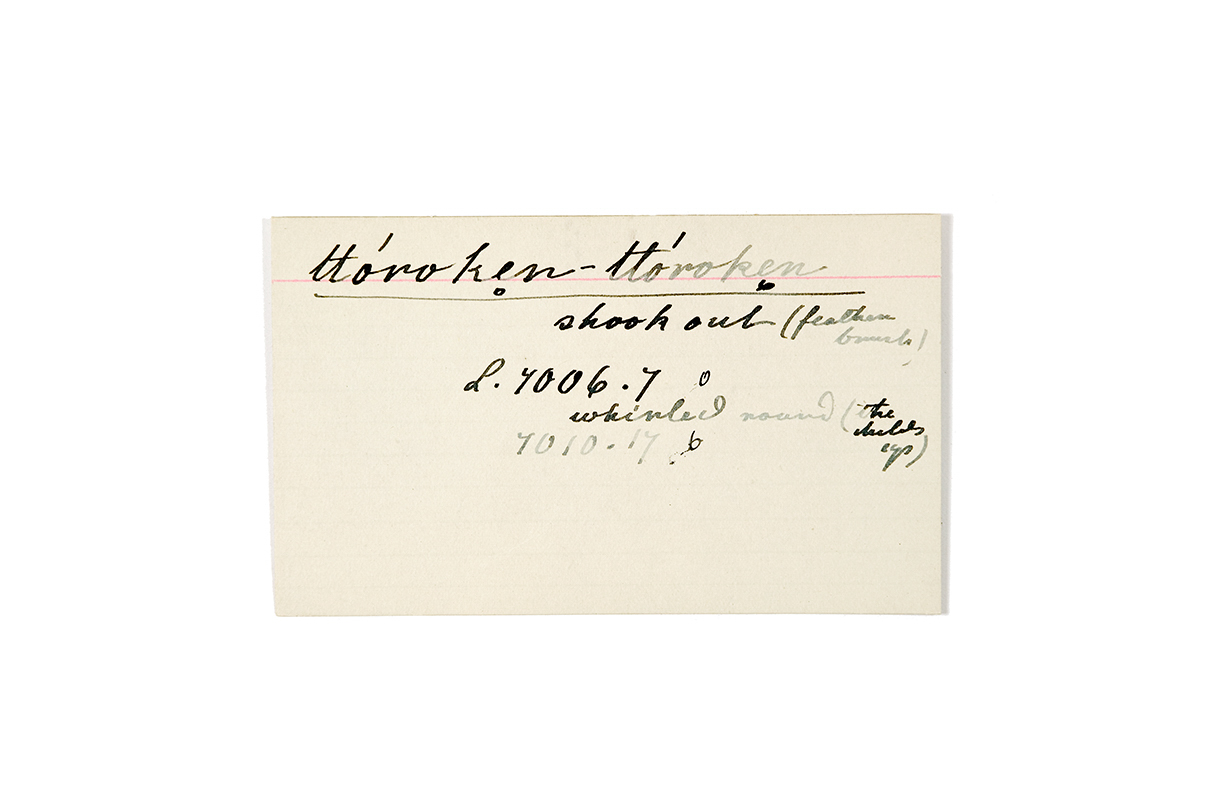 ttórokẹn-ttórokẹn
shook out (feather
brush)
L. 7006.7
whirled round (the
child's
eye)
7010.17